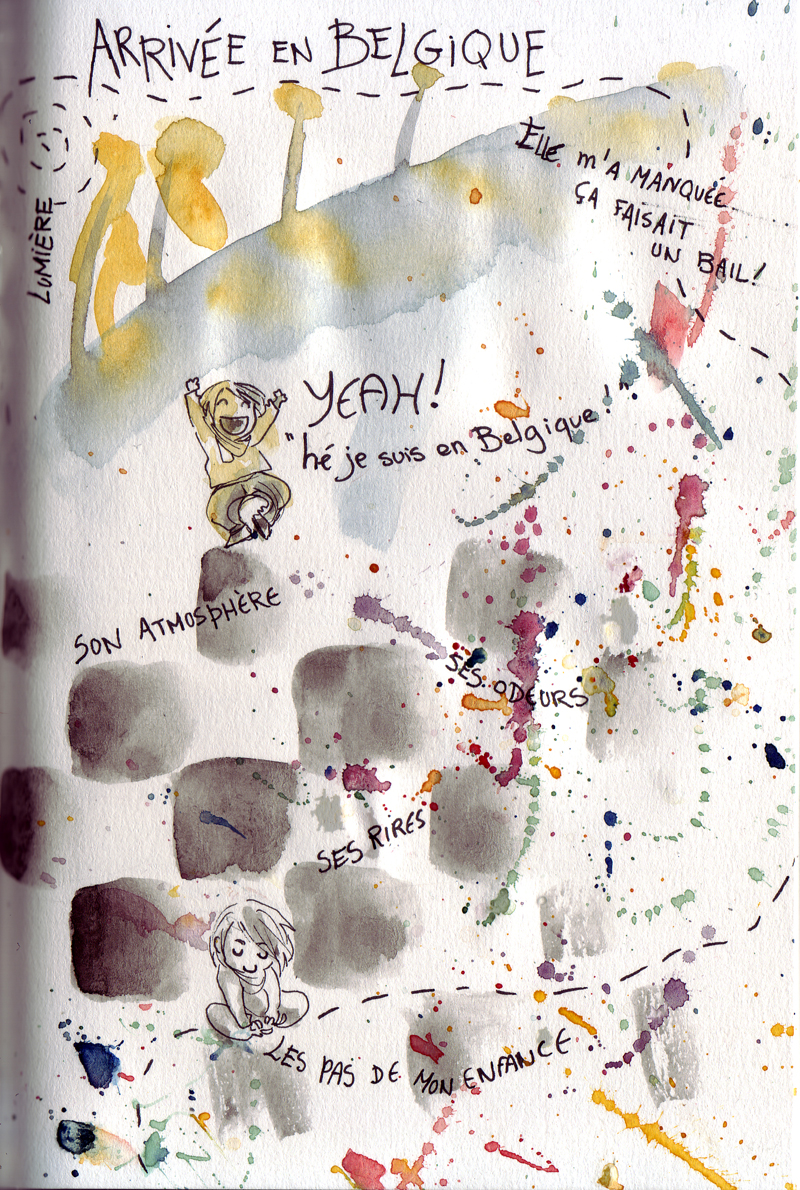 ARRIVÉE EN BELGIQUE
LUMIÈRE
ELLE m'A MANQUÉE
ÇA FAISAIT
UN BAIL!
YEAH!
"hé je suis en Belgique!"
SON ATMOSPHÈRE
SES ODEURS
SES RIRES
LES PAS DE MON ENFANCE